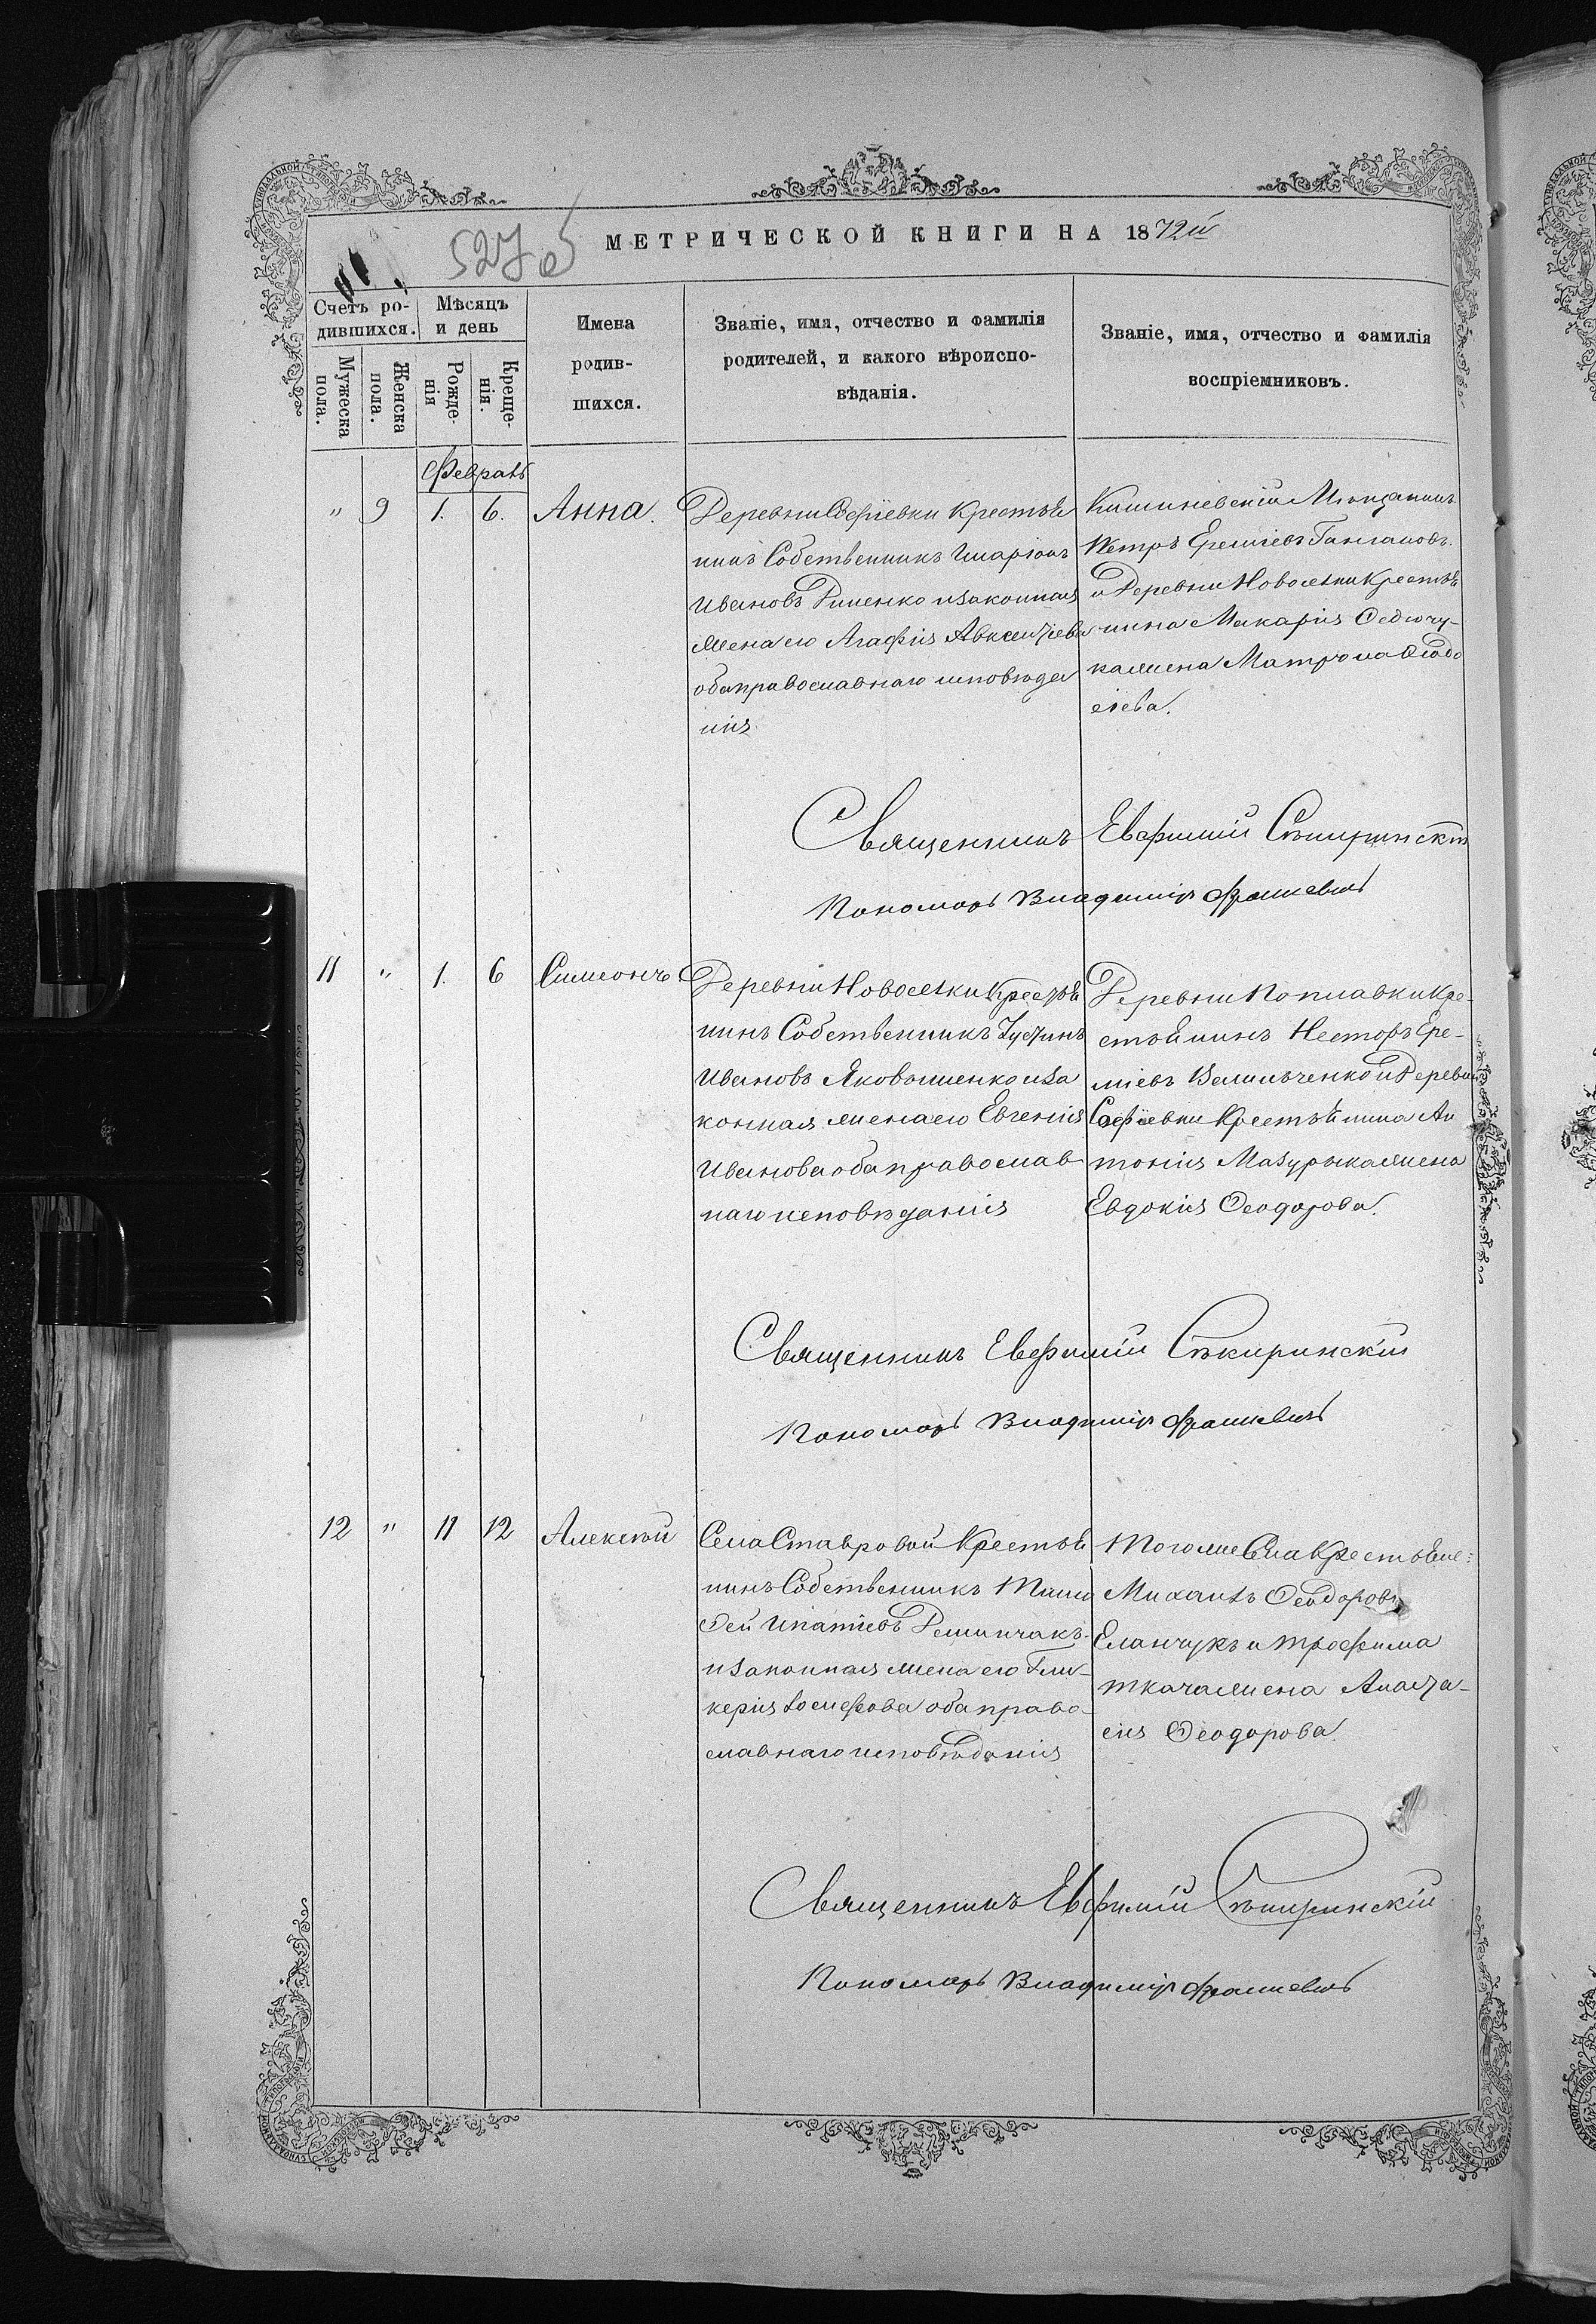 527 об
МЕТРИЧЕСКОЙ КНИГИ НА 1872й
Счетъ ро-
дившихся.
Мѣсяцъ
и день
Мужеска
пола.
Женска
пола.
Рожде-
нія
Креще-
нія.
Имена
родив-
шихся.
Званіе, имя, отчество и фамилія
родителей, и какого вѣроиспо-
вѣданія.
Званіе, имя, отчество и фамилія
воспріемниковъ.
Февраль
" 9 1. 6. Анна.
Деревни Софіевки Крестья
нинъ Собственникъ Иларіонъ
Ивановъ Риценко и законная
жена его Агафія Авксентіева
оба православнаго исповѣда
нія
Кишиневскій Мѣщанинъ
Петръ Ереміевъ
и Деревни Новоселки Крестья
нина Макарія Федючу-
ка жена Матрона Ѳадо
еіева.
Священникъ Евфимій Сѣкиринскій
Пономарь Владиміръ
11 " 1. 6 Симеонъ
Деревни Новоселки Крестья
нинъ Собственникъ Іустинъ
Ивановъ Яковышенко и за
конная жена его Евгенія
Иванова оба православ
наго исповѣданія
Деревни Поплавки Кре-
стьянинъ Несторъ Ере-
міевъ Василъченко и Деревни
Софіевки Крестьянина Ан
тонія Мазурыка жена
Евдокія Ѳеодорова.
Священникъ Евфимій Сѣкиринскій
Пономарь Владиміръ
12 " 11 12 Алексѣй
Села Ставровой Крестья
нинъ Собственникъ Тимо
ѳей Ипатіевъ
и законная жена его Гли-
керія Іосифова оба право
славнаго исповѣданія
Того же Села Крестьяне:
Михаилъ Ѳеодоровъ
Еланчукъ и Трофима
ткача жена Анаста-
сія Ѳеодорова.
Священникъ Евфимій Сѣкиринскій
Пономарь Владиміръ